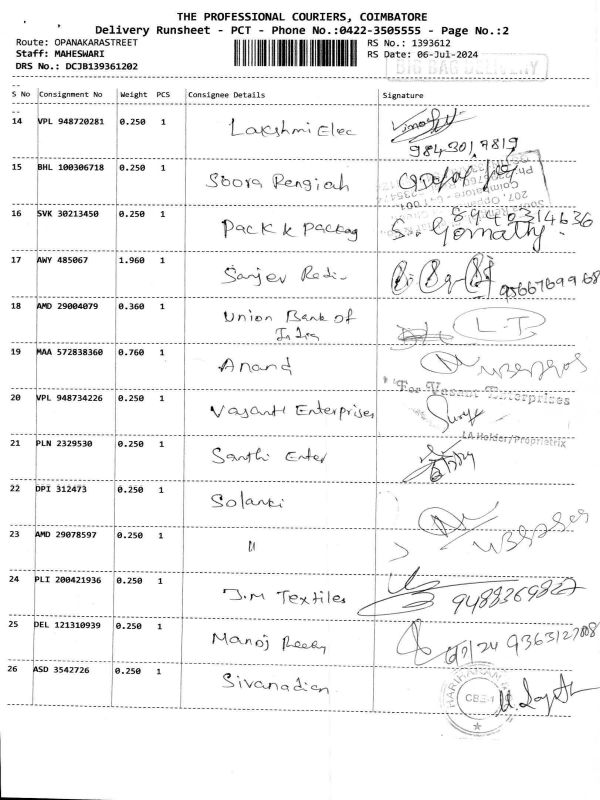 THE PROFESSIONAL COURIERS, COIMBATORE
Delivery Runsheet - PCT - Phone No.:0422-3505555 - Page No.:2
Route: OPANAKARASTREET RS No.: 1393612
Staff: MAHESWARI RS Date: 06-Jul-2024
DRS No.: DCJB139361202
BIG BAG DELIVERY
S No Consignment No Weight PCS Consignee Details Signature
14 VPL 948720281 0.250 1 Lakshmi Elec
9843019819
15 BHL 100306718 0.250 1 Soora Rengiah
16 SVK 30213450 0.250 1 Pack k Packag
8940314636
S. Gomathy.
17 AWY 485067 1.960 1 Sanjev Redi
9566769968
18 AMD 29004079 0.360 1 Union Bank of
India L.T.
19 MAA 572838360 0.760 1 Anand
For Vasant Enterprises
20 VPL 948734226 0.250 1 Vasant Enterprises
LA Holder/Proprietrix
21 PLN 2329530 0.250 1 Santhi Enter
22 DPI 312473 0.250 1 Solanki
23 AMD 29078597 0.250 1 "
24 PLI 200421936 0.250 1 J.M Textiles
25 DEL 121310939 0.250 1 Manoj
6/7/24 9363127008
26 ASD 3542726 0.250 1 Sivanadian